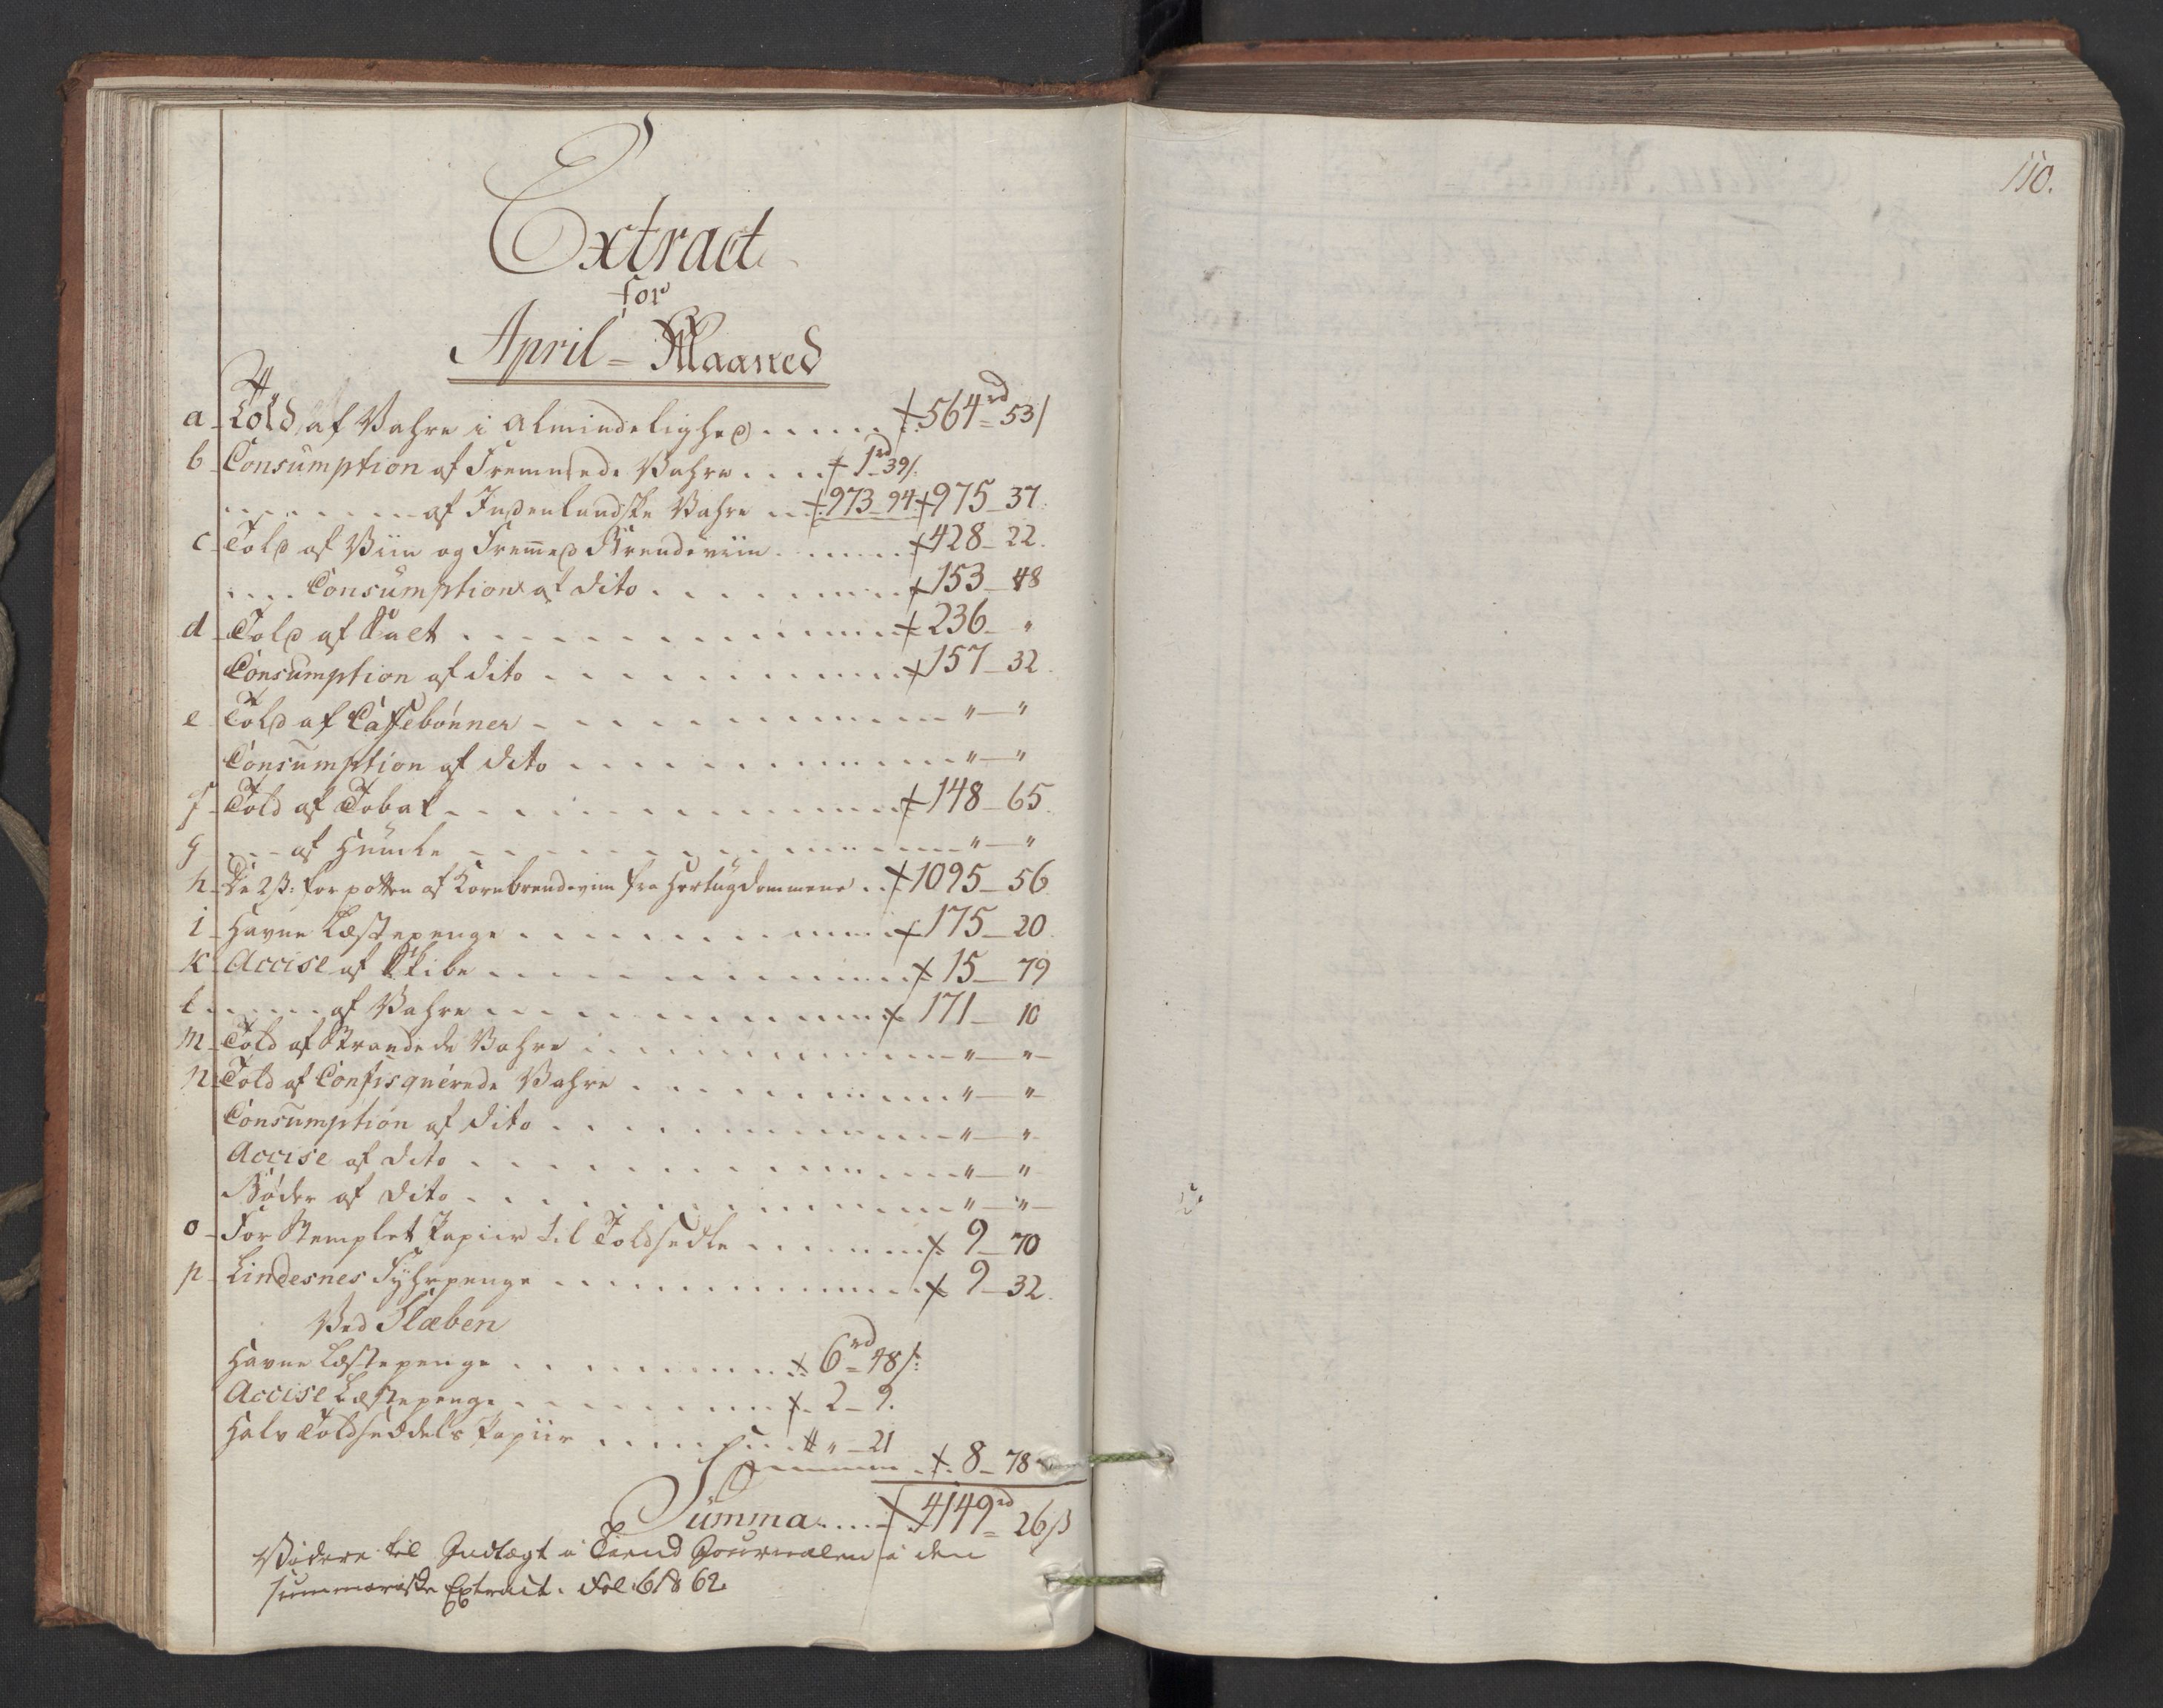 Extract
for
April = Maaned
a Told af Vahre i Almindelighed ...... 564rd = 53/
b Consumption af Fremmede Vahre .... 1rd 39/.
........ af Indenlandske Vahre .. 973_94. 975_37.
c Told af Viin og Fremed Brendeviin ...... 428_22.
.... Consumption af dito ........ 153_48
d Told af Salt ............ 236_"
Consumption af dito ............ 157_32.
e Told af Caffebønner ............ "_"
Consumption af dito ............ "_"
f Told af Tobak ............ 148_65.
g ... af Humle ............ "_"
h De 2ß: for potten af Kornbrendeviin fra Hertugdommene .. 1095_56.
i Havne Læstepenge ............ 175_20.
k Accise af Skibe ............ 15_79
l ...... af Vahre ............ 171_10
m Told af Strandede Vahre ............ "_"
n Told af Confisquerede Vahre ............ "_"
Consumption af dito ............ "_"
Accise af dito ............ "_"
Bøder af dito ............ "_"
o For Stemplet Papiir til Toldsedle ........ 9_70
p Lindesnes Fyhrpenge ............ 9_32.
Ved Slæben
Havne Læstepenge .......... 6rd = 48/:
Accise Læstepenge .......... 2_9.
Halv Toldseddels Papiir ...... "_21
8_78
Summa .... 4149rd = 26ß
Videre til Indtægt i Tiend Journalen i den
summariske Extract. Fol: 61 & 62.
110.